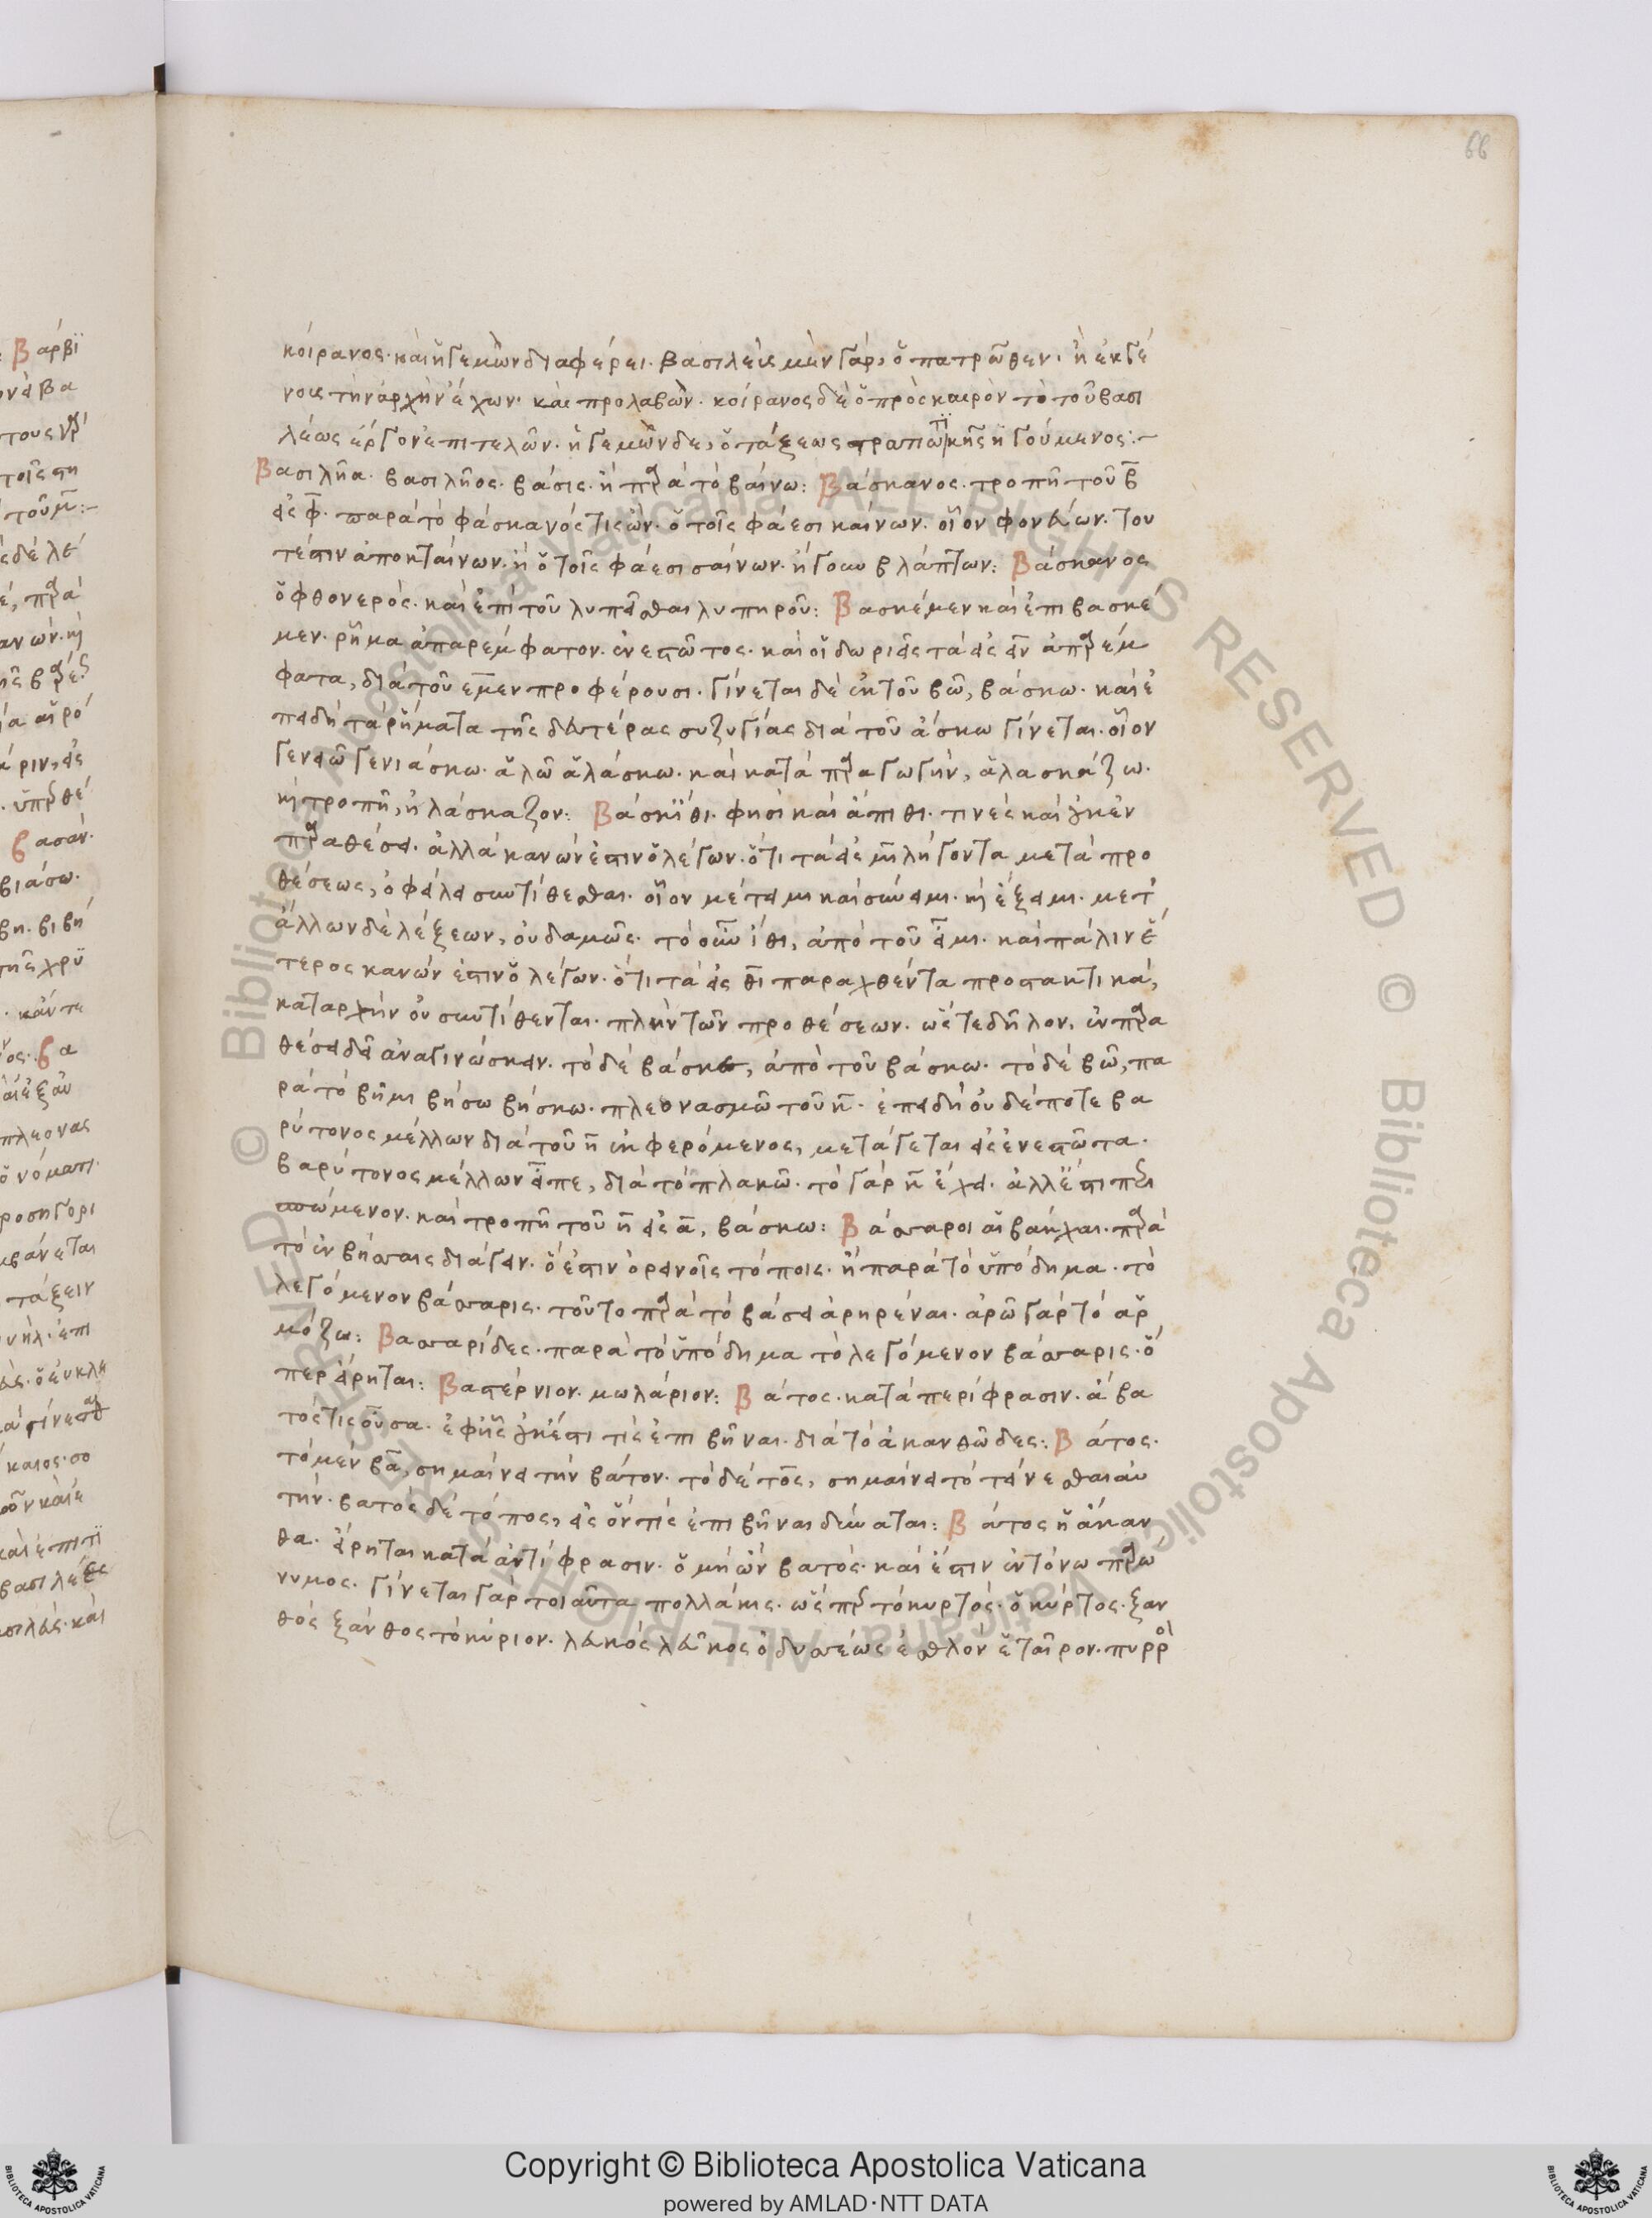 66
κοίρανος· καὶ ἡγεμὼν διαφέρει. βασιλεὺς μὲν γάρ, ὁ πατρῶθεν· ἢ ἐκ γέ
νους τὴν ἀρχὴν ἔχων· καὶ προλαβών. κοίρανος δὲ ὁ πρὸς καιρὸν τὸ τοῦ βασι
λέως ἔργον ἐπιτελῶν. ἡγεμὼν δε, ὁ τάξεως στρατιωτικῆς ἡγούμενος:-
Βασιλῆα. βασιλῆος. βάσις. ἢ παρὰ τὸ βαίνω: Βάσκανος. τροπῆ τοῦ β
εἰς φ. παρὰ τὸ φάσκανός τις ὤν. ὁ τοῖς φάεσι καίνων. οἷον φονεύων. του
τέστιν ἀποκταίνων. ἢ ὁ τοῖς φάεσι σαίνων. ἤγουν βλάπτων: Βάσκανος
ὁ φθονερός. καὶ ἐπὶ τοῦ λυπεῖσθαι λυπηροῦ: Βασκέμεν καὶ ἐπιβασκέ
μεν. ῥῆμα ἀπαρέμφατον. ἐνεστῶτος. καὶ οἱ δωριεῖς τὰ εἰς ειν ἀπαρέμ
φατα, διὰ τοῦ εμεν προφέρουσι. γίνεται δὲ ἐκ τοῦ βῶ, βάσκω. καὶ ἐ
πειδὴ τὰ ῥήματα τῆς δευτέρας συζυγίας διὰ τοῦ άσκω γίνεται. οἷον
γενειῶ γενιάσκω. ἀλῶ ἀλάσκω. καὶ κατὰ παραγωγήν, ἀλασκάζω.
κὶ τροπῆ, ἠλάσκαζον: Βάσκ ἴθι. φησὶ καὶ ἄπιθι. τινὲς καὶ οὐκ ἐν
παραθέσει. ἀλλὰ κανών ἐστιν ὁ λέγων. ὅτι τὰ εἰς μι λήγοντα μετὰ προ
θέσεως, ὀφείλει συντίθεσθαι. οἷον μέτειμι καὶ σύνειμι. κὶ ἔξειμι. μετ
ἄλλων δὲ λέξεων, οὐδαμῶς. τὸ οὖν ἴθι, ἀπὸ τοῦ εἶμι. καὶ πάλιν ἕ
τερος κανών ἐστιν ὁ λέγων. ὅτι τὰ εἰς θι παραχθέντα προστακτικά,
καταρχὴν οὐ συντίθενται. πλὴν τῶν προθέσεων. ὥστε δῆλον, ἐν παρα
θέσει δεῖ ἀναγινώσκειν. τὸ δὲ βάσκε, ἀπὸ τοῦ βάσκω. τὸ δὲ βῶ, πα
ρὰ τὸ βῆμι βήσω βήσκω. πλεονασμῶ τοῦ κ. ἐπειδὴ οὐδέποτε βα
ρύτονος μέλλων διὰ τοῦ η ἐκφερόμενος, μετάγεται εἰς ἐνεστῶτα.
βαρύτονος μέλλων εἶπε, διὰ τὸ πλακῶ. τὸ γὰρ κ ἔχει. ἀλλ ἔστι περι
σπώμενον. καὶ τροπῆ τοῦ η εἰς α, βάσκω: Βάσσαροι αἱ βάκχαι. παρὰ
τὸ ἐν βήσσαις διάγειν. ὅ ἐστιν ὀρεινοῖς τόποις. ἢ παρὰ τὸ ὑπόδημα. τὸ
λεγόμενον βάσσαρις. τοῦτο παρὰ τὸ βάσει ἀρηρέναι. ἀρῶ γὰρ τὸ ἁρ
μόζω: Βασσαρίδες. παρὰ τὸ ὑπόδημα τὸ λεγόμενον βάσσαρις. ὅ
περ εἴρηται: Βαστέρνιον. μωλάριον: Βάτος. κατὰ περίφρασιν. ἄβα
τός τις οὖσα. ἐφ ἧς οὐκ ἔστι τὶς ἐπιβῆναι. διὰ τὸ ἀκανθῶδες: Βάτος.
τὸ μὲν βα, σημαίνει τὴν βάτον. τὸ δὲ τος, σημαίνει τὸ τείνεσθαι αὐ
τήν. βατὸς δὲ τόπος, εἰς ὅν τίς ἐπιβῆναι δύναται: Βάτος ἡ ἄκαν
θα. εἴρηται κατὰ ἀντίφρασιν. ὁ μὴ ὢν βατός. καὶ ἔστιν ἐν τόνω παρώ
νυμος. γίνεται γὰρ τοιαῦτα πολλάκις. ὥσπερ τὸ κυρτός. ὁ κύρτος. ξαν
θός ξάνθος τὸ κύριον. λευκός λεῦκος ὀδυσσέως ἐσθλὸν ἑταῖρον. πυρρο
Copyright © Biblioteca Apostolica Vaticana
powered by AMLAD·NTT DATA